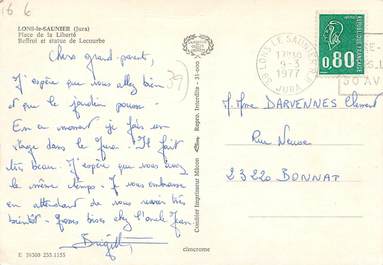 16 6
LONS-le-SAUNIER (Jura)
Place de la Liberté
Beffroi et statue de Lecourbe
Chers grand-parents,
J'espère que vous allez bien
et que le jardin pousse.
En ce moment je fais un
stage dans le Jura. Il fait
très beau. J'espère que vous avez
le même temps. Je vous embrasse
en attendant de vous revoir très
bientôt. Grosses bises chez l'oncle Jean
Brigitte
39
E 39300 255.1155
cimcrome
Combier Imprimeur Mâcon
39 LONS LE SAUNIER
9-3
1977
JURA
0,80
M. Mme DARVENNES Clément
Rue Neuve
23220 BONNAT